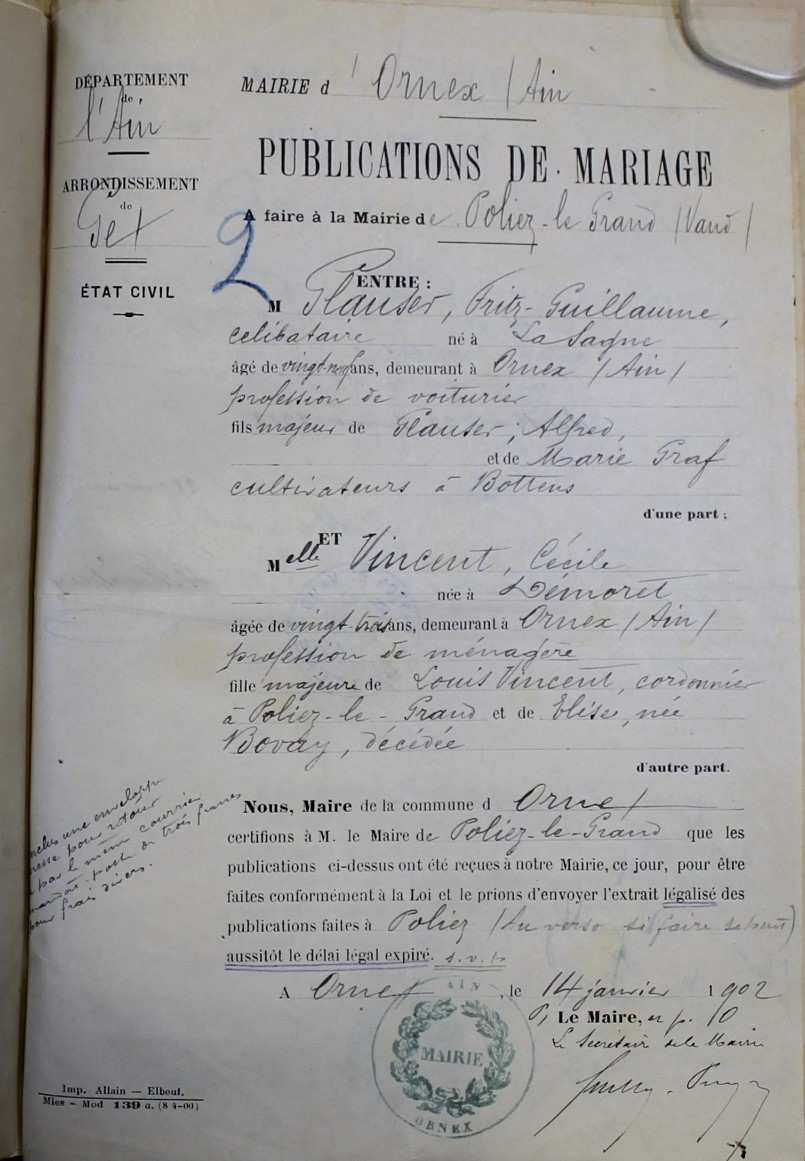 DÉPARTEMENT
de
l'Ain
ARRONDISSEMENT
de
Gex
ÉTAT CIVIL
MAIRIE d'Ornex (Ain
PUBLICATIONS DE MARIAGE
A faire à la Mairie de Poliez-le Grand (Vaud)
2
ENTRE :
M Glauser, Fritz-Guillaume,
celibataire né à La Sagne
âgé de vingt-neuf ans, demeurant à Ornex (Ain)
profession de voiturier
fils majeur de Glauser, Alfred,
et de Marie Graf
cultivateurs à Bottens
d'une part ;
ET
Melle Vincent, Cécile
née à Démoret
âgée de vingt-trois ans, demeurant à Ornex (Ain)
profession de ménagère
fille majeure de Louis Vincent, cordonnier
à Poliez-le-Grand et de Elise, née
Bovay, décédée
d'autre part.
Nous, Maire de la commune d Ornex
certifions à M. le Maire de Poliez-le-Grand que les
publications ci-dessus ont été reçues à notre Mairie, ce jour, pour être
faites conformément à la Loi et le prions d'envoyer l'extrait légalisé des
publications faites à Poliez (Au verso si faire se peut)
aussitôt le délai légal expiré. s.v.p
A Ornex, le 14 janvier 1902
P, Le Maire, et p. O
Le Secrétaire de la Mairie
une enveloppe
pour retour
par le même courrier
mandat-poste de trois francs
pour frais divers.
AIN
MAIRIE
ORNEX
Imp. Allain - Elbeuf.
Mies - Mod 139 a. (8 4-00)